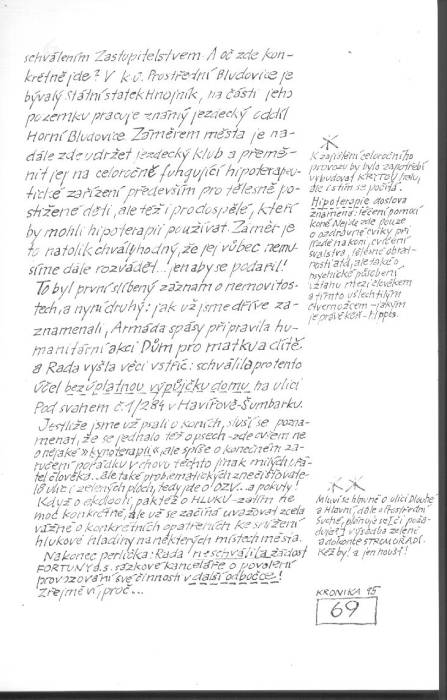 schválením Zastupitelstvem. A oč zde kon-
krétně jde? V k.ú. Prostřední Bludovice je
bývalý Státní statek Hnojník, na části jeho
pozemku pracuje známý jezdecký oddíl
Horní Bludovice. Záměrem města je na-
dále zde udržet jezdecký klub a přemě-
nit jej na celoročně fungující hipoterapeu-
tické zařízení především pro tělesně po-
stižené děti, ale též i pro dospělé, kteří
by mohli hipoterapii používat. Záměr je
to natolik chválihodný, že jej vůbec nemu-
síme dále rozvádět... jen aby se podařil!
To byl první slíbený záznam o nemovitos-
tech, a nyní druhý: jak už jsme dříve za-
znamenali, Armáda spásy připravila hu-
manitární akci Dům pro matku a dítě
a Rada vyšla věci vstříc: schválila pro tento
účel bezúplatnou výpůjčku domu na ulici
Pod svahem č.1/284 v Havířově-Šumbarku.
Jestliže jsme už psali o koních, sluší se pozna-
menat, že se jednalo též o psech - zde ovšem ne
o nějaké »kynoterapii«, ale spíše o konečném za-
ručení pořádku v chovu těchto jinak milých přá-
tel člověka... ale také problematických znečišťovate-
lů ulic i zelených ploch, tedy jde o OZV... a pokuty!
Když o okdoli, pak též o HLUKU - zatím ne
moc konkrétně, ale už se začíná uvažovat zcela
vážně o konkrétních opatřeních ke snížení
hlukové hladiny na některých místech města.
Nakonec perlička: Rada neschválila žádost
FORTUNY a.s. sázkové kanceláře o povolení
provozování své činnosti v další odbočce!
Zřejmě ví, proč...
K zajištění celoročního
provozu by bylo zapotřebí
vybudovat krytou halu,
ale i s tím se počítá.
Hipoterapie doslova
znamená: léčení pomocí
koně. Nejde zde pouze
o ozdravné cviky při
jízdě na koni, cvičení
svalstva, tělesné obrat-
nosti atd, ale také o
psychické působení
vztahu mezi člověkem
a tímto ušlechtilým
čtvernožcem - jakým
je právě kůň - hippos.
Mluví se hlavně o ulici Dlouhé
a Hlavní, dále o Prostřední
Suché, plánuje se (či poža-
duje?) výsadba zeleně
a dokonce STROMOŘADÍ.
Kéž by! a jen houšť!
KRONIKA 95
69